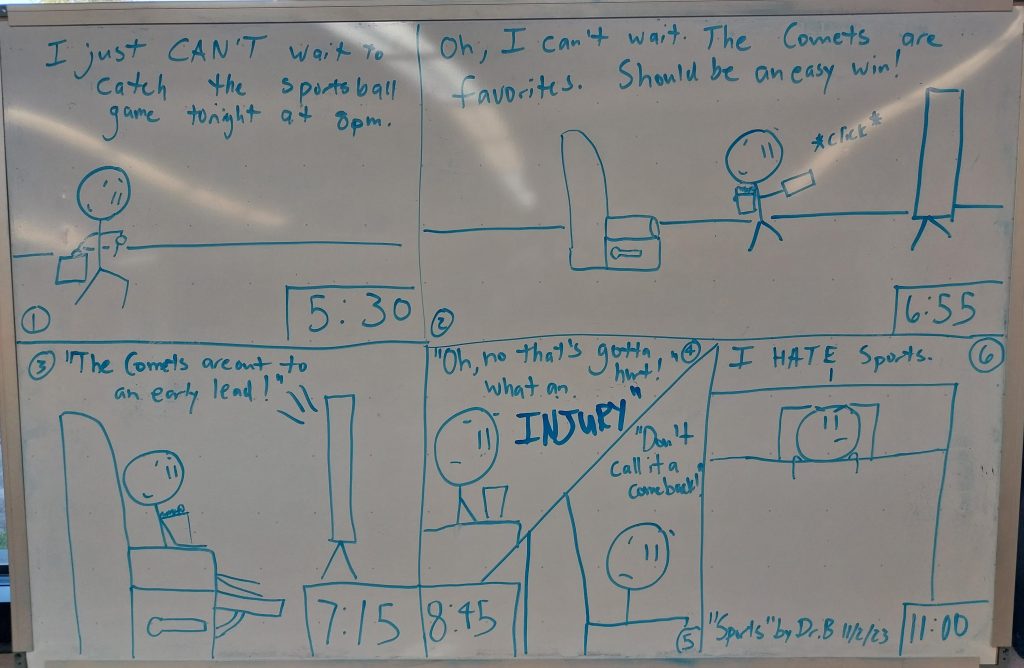 I just CAN'T wait to
catch the sportsball
game tonight at 8pm.
5:30
1
Oh, I can't wait. The Comets are
favorites. Should be an easy win!
*click*
6:55
2
3
"The Comets are out to
an early lead!"
7:15
"Oh, no that's gotta
hurt!"
4
what an
INJURY"
8:45
"Don't
call it a
comeback!"
5
6
I HATE Sports.
"Sports" by Dr.B 11/2/23
11:00